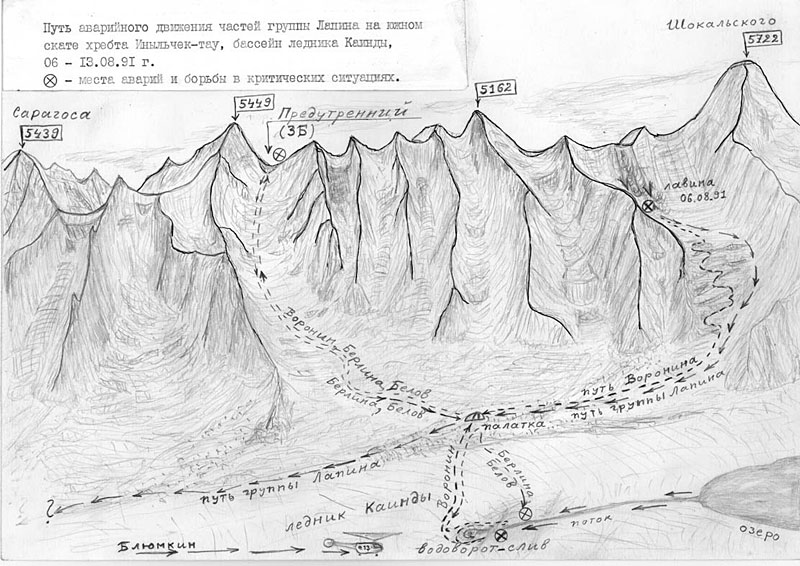 Путь аварийного движения частей группы Лапина на южном
скате хребта Иныльчек-тау, бассейн ледника Каинды,
06 - 13.08.91 г.
⊗ - места аварий и борьбы в критических ситуациях.
Шокальского
5722
Сарагоса
5439
5449
Предутренний
(3Б)
5162
лавина
06.08.91
Воронин, Берлина, Белов
Берлина, Белов
путь Воронина
путь группы Лапина
палатка
путь группы Лапина
?
Воронин
Берлина
Белов
ледник Каинды
поток
озеро
водоворот-слив
Блюмкин